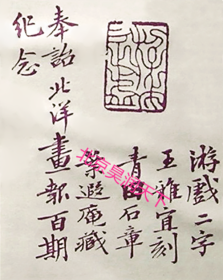 游戲二字
王雅宜刻
青田石章
葉遐庵藏
奉詒北洋畫報百期
紀念